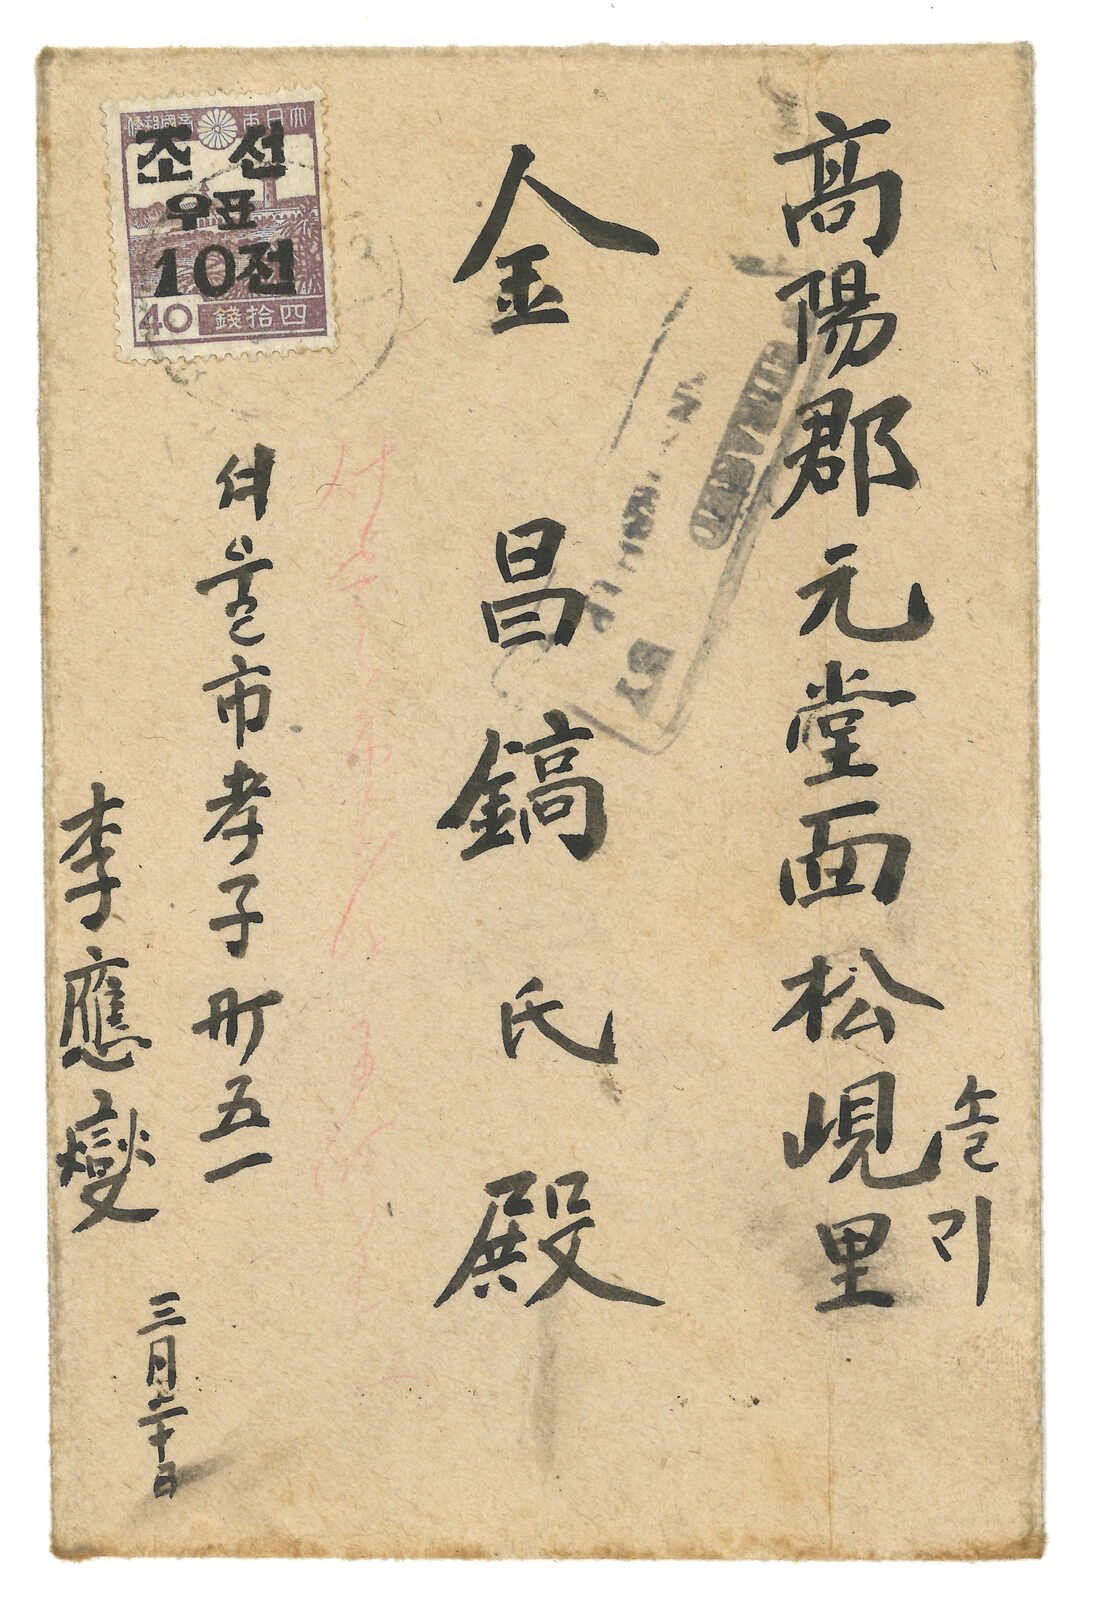 高陽郡元堂面松峴里
솔
기
金昌鎬氏殿
서울市孝子町五一
李應燮
三月二十日
大日本帝國郵便
조선
우표
10전
40
四拾錢
CENSORED
BY